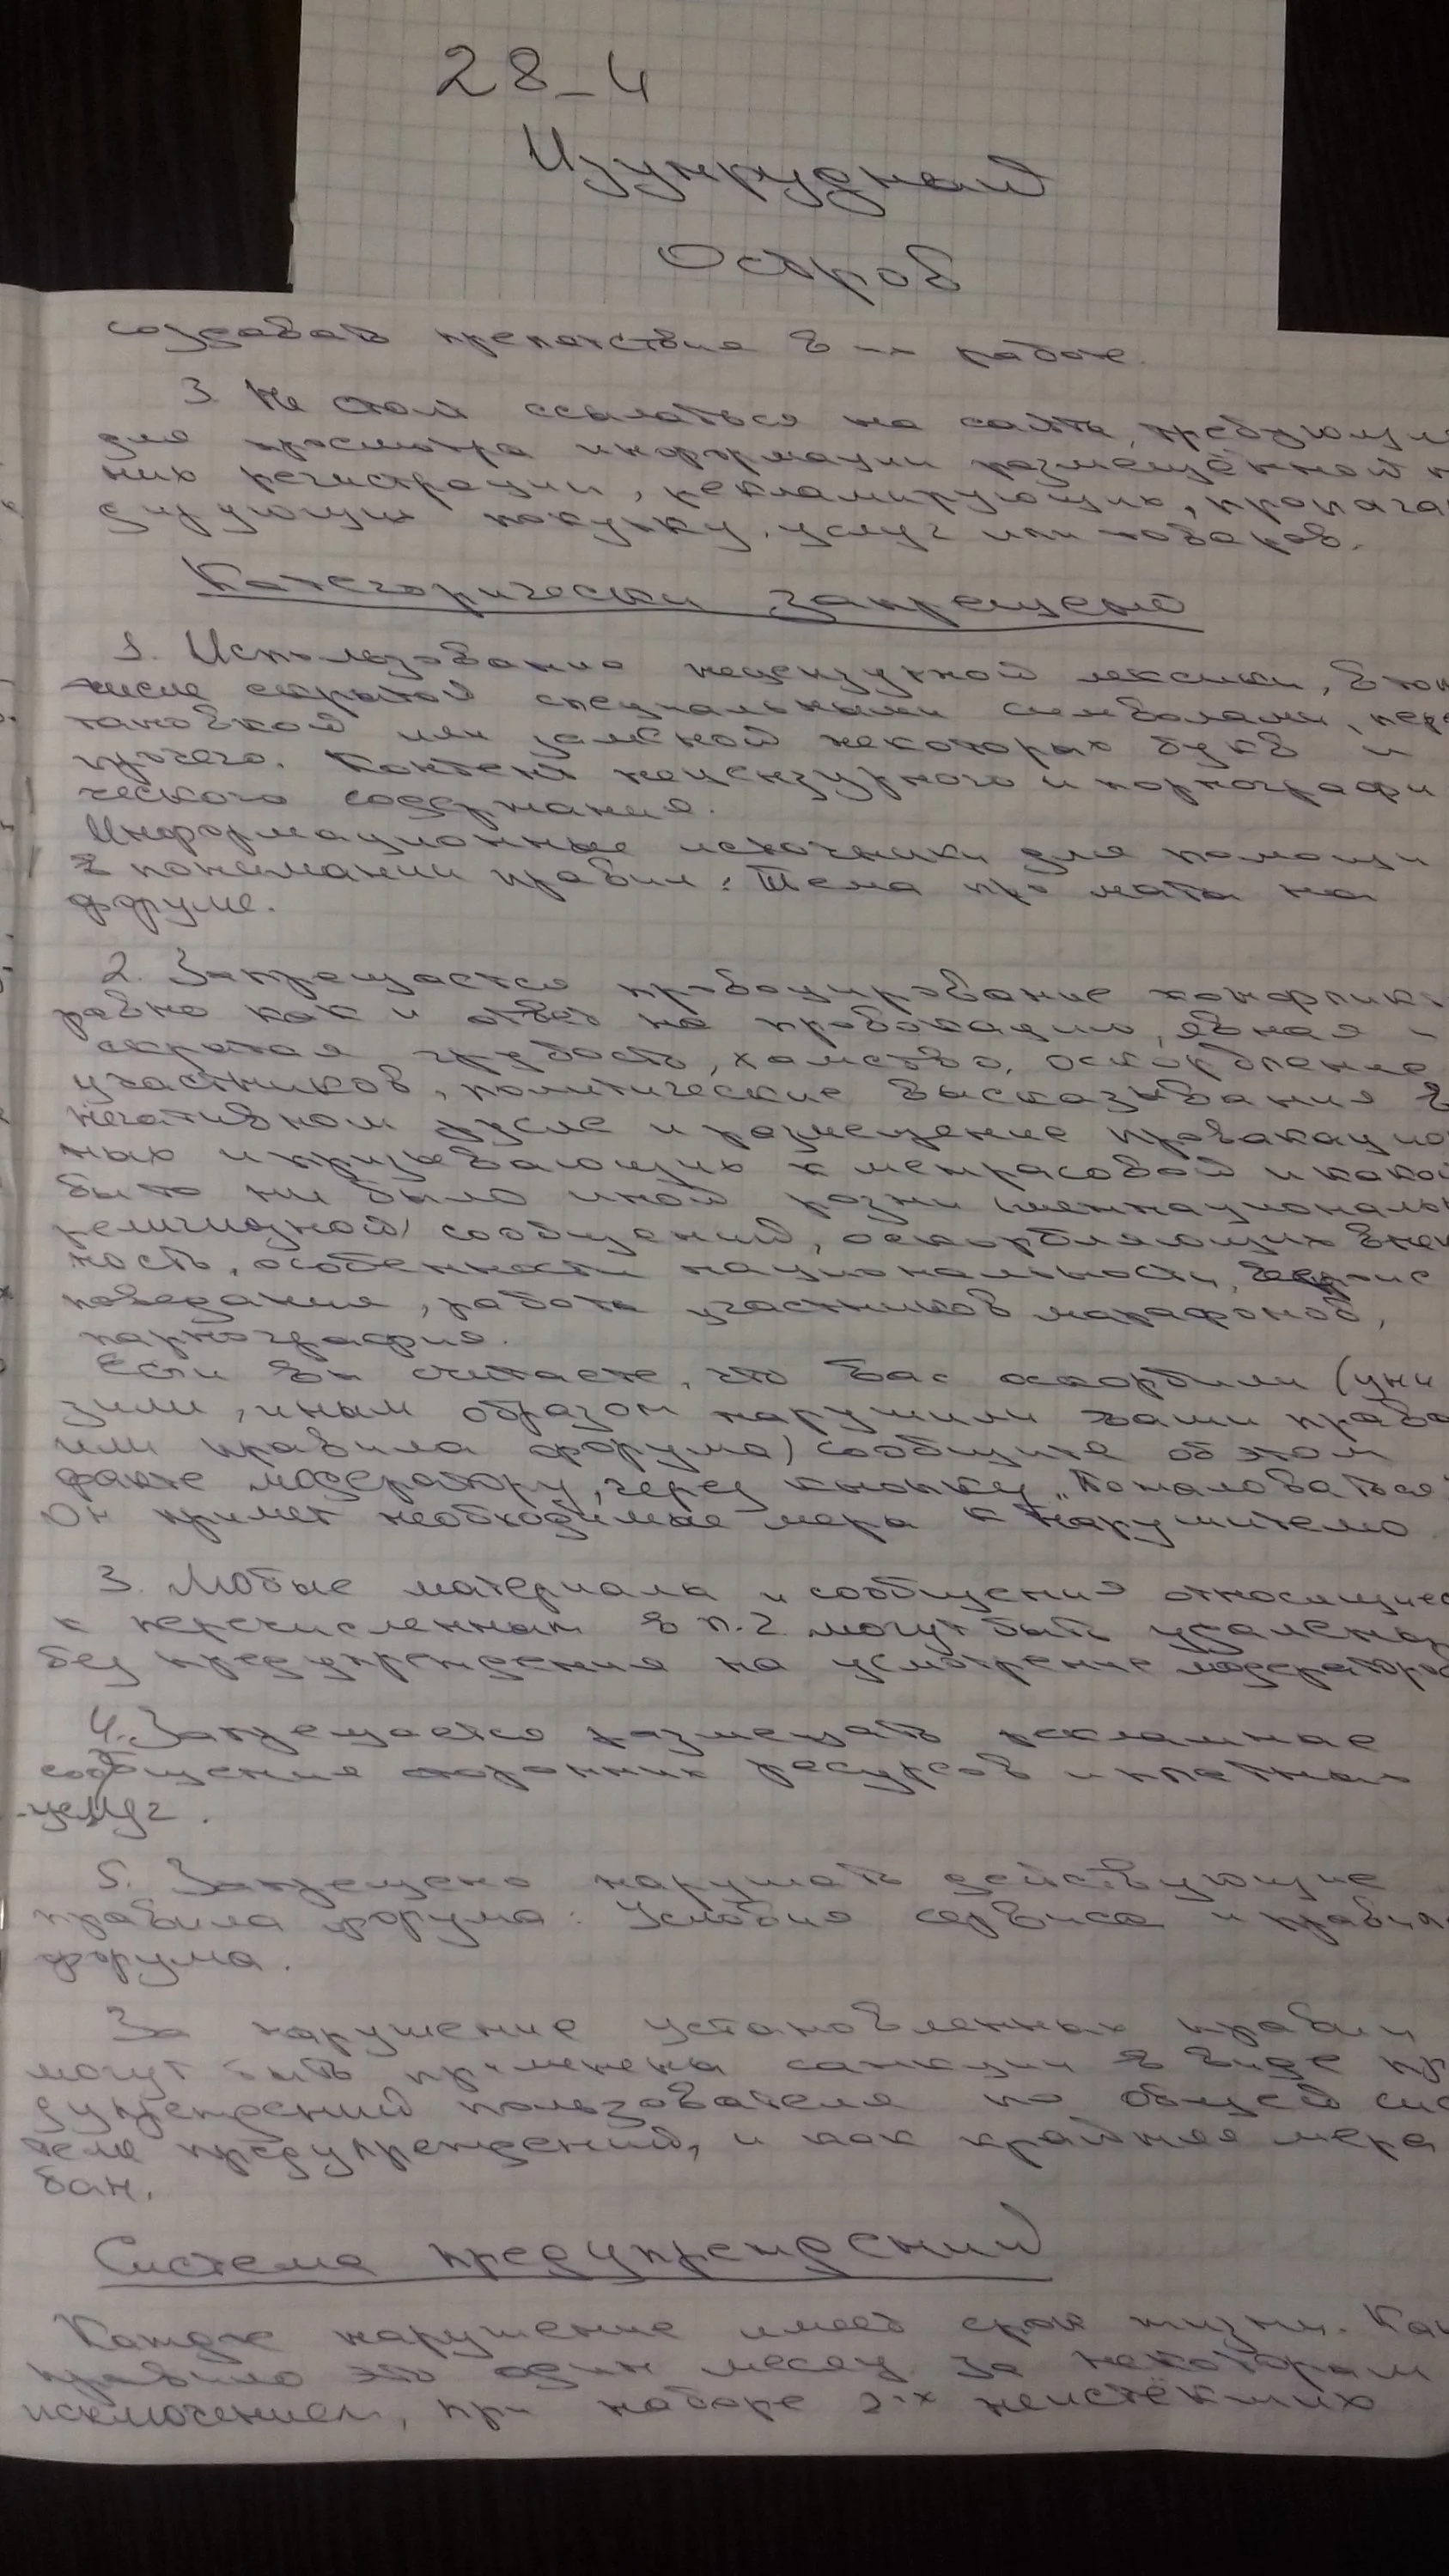 28_4
Изумрудный
Остров
создавать препятствия в их работе.
3. Не стоит ссылаться на сайты, требующи
для просмотра информации размещённой н
них регистрации, рекламирующих, пропага
дирующих покупку, услуг или товаров.
Категорически запрещено
1. Использование нецензурной лексики, в том
числе скрытой специальными символами, пере
тановкой или заменой некоторых букв и
прочего. Контент нецензурного и порнографи
ческого содержания.
Информационные источники для помощи
в понимании правил: Тема про маты на
форуме.
2. Запрещается провоцирование конфлик
равно как и ответ на провокацию, явная и
скрытая грубость, хамство, оскорбление
участников, политические высказывания в
негативном русле и размещение провакацио
ных и призывающих к межрасовой и какой
бы то ни было иной розни (межнациональ
религиозной) сообщений, оскорбляющих внеш
ность, особенности национальности,
поведания, работы участников марафонов,
парнография.
Если вы считаете, что вас оскорбили (уни
зили, иным образом нарушили ваши права
или правила форума) сообщите об этом
факте модератору, через кнопку „Пожаловаться"
Он примет необходимые меры к нарушителю.
3. Любые материалы и сообщения относящиес
к перечисленным в п.2 могут быть удалены
без предупреждения на усмотрение модераторов
4. Запрещается размещать рекламные
сообщения сторонних ресурсов и платных
услуг.
5. Запрещено нарушать действующие
правила форума: Условия сервиса и правила
форума.
За нарушение установленных правил
могут быть применены санкции в виде пр
дупреждений пользователя по общей сис
теме предупреждений, и как крайняя мера
бан.
Система предупреждений
Каждое нарушение имеет срок жизни. Как
правило это один месяц. За некоторым
исключением, при наборе 2-х неистёкших